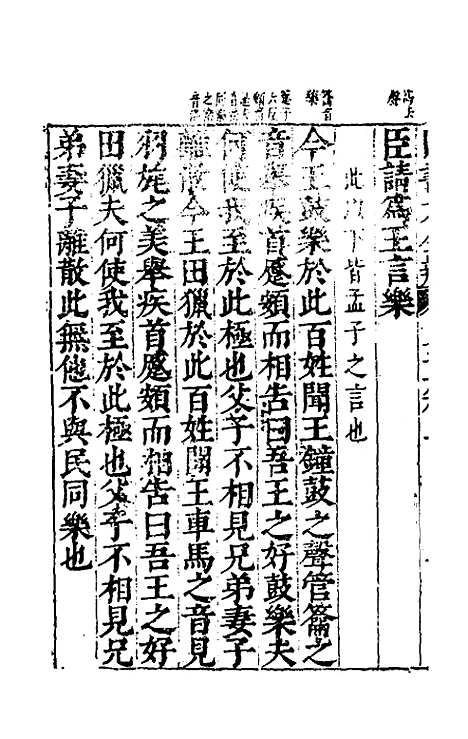 臣請爲王言樂
此以下皆孟子之言也
今王鼓樂於此百姓聞王鐘鼓之聲管籥之
音舉疾首蹙頞而相告曰吾王之好鼓樂夫
何使我至於此極也父子不相見兄弟妻子
離散今王田獵於此百姓聞王車馬之音見
羽旄之美舉疾首蹙頞而相告曰吾王之好
田獵夫何使我至於此極也父子不相見兄
弟妻子離散此無他不與民同樂也